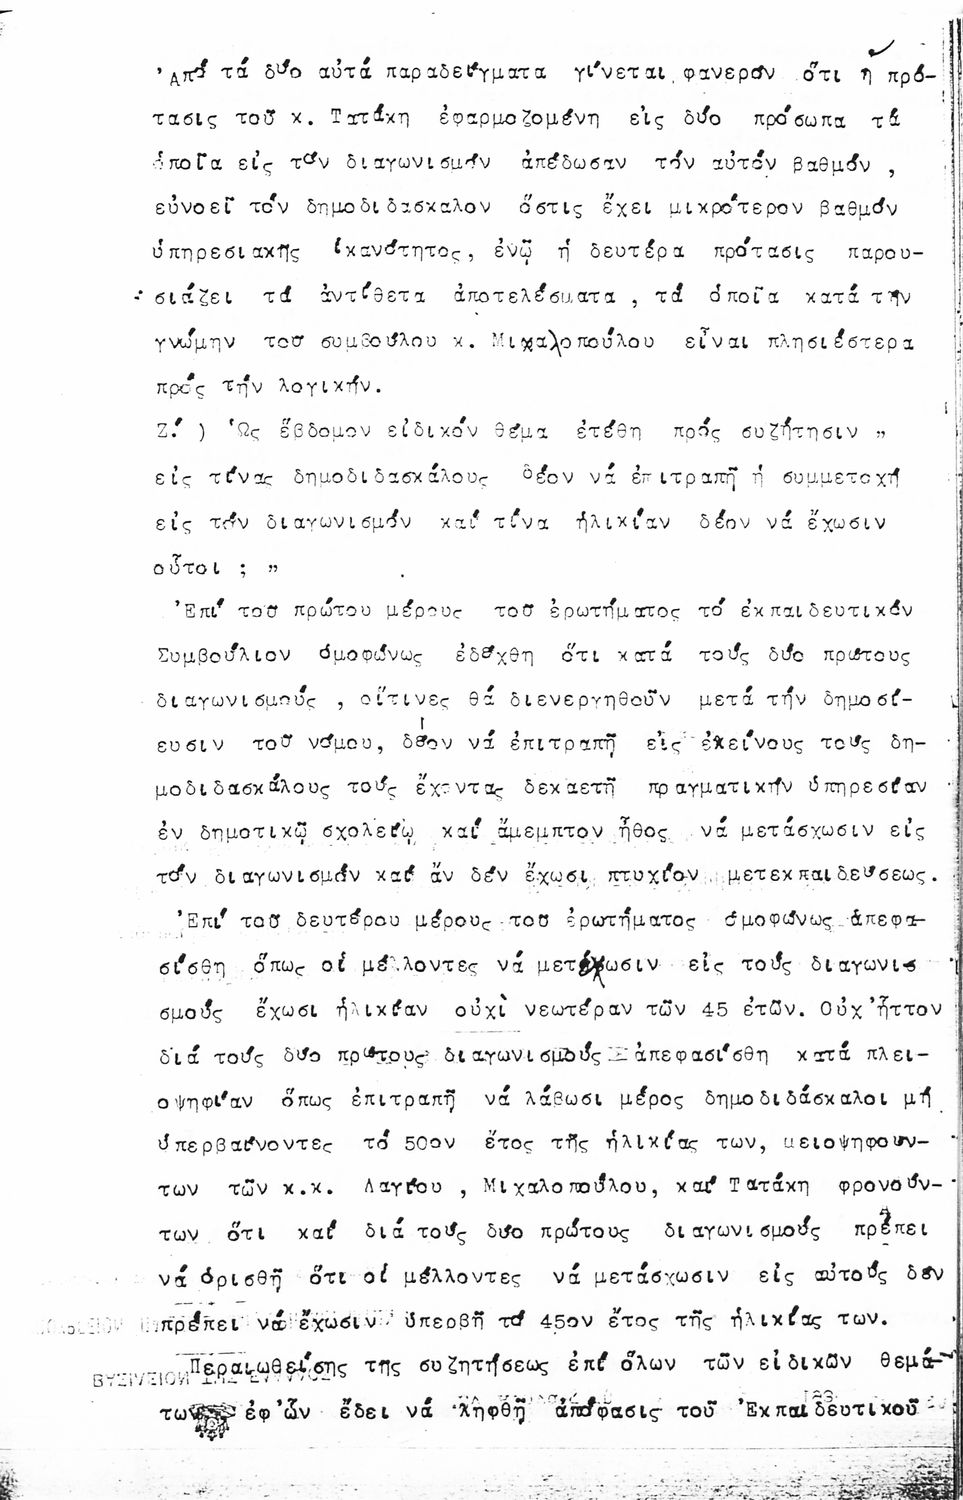 Ἀπό τά δύο αὐτά παραδείγματα γίνεται φανερόν ὅτι ἡ πρό-
τασις τοῦ κ. Τατάκη ἐφαρμοζομένη εἰς δύο πρόσωπα τά
ὁποῖα εἰς τόν διαγωνισμόν ἀπέδωσαν τόν αὐτόν βαθμόν ,
εὐνοεῖ τόν δημοδιδάσκαλον ὅστις ἔχει μικρότερον βαθμόν
ὑπηρεσιακῆς ἱκανότητος, ἐνῷ ἡ δευτέρα πρότασις παρου-
σιάζει τά ἀντίθετα ἀποτελέσματα , τά ὁποῖα κατά τήν
γνώμην τοῦ συμβούλου κ. Μιχαλοπούλου εἶναι πλησιέστερα
πρός τήν λογικήν.
Ζ.΄ ) Ὡς ἕβδομον εἰδικόν θέμα ἐτέθη πρός συζήτησιν "
εἰς τίνας δημοδιδασκάλους δέον νά ἐπιτραπῇ ἡ συμμετοχή
εἰς τόν διαγωνισμόν καί τίνα ἡλικίαν δέον νά ἔχωσιν
οὗτοι ; "
Ἐπί τοῦ πρώτου μέρους τοῦ ἐρωτήματος τό ἐκπαιδευτικόν
Συμβούλιον ὁμοφώνως ἐδέχθη ὅτι κατά τούς δύο πρώτους
διαγωνισμούς , οἵτινες θά διενεργηθοῦν μετά τήν δημοσί-
ευσιν τοῦ νόμου, δέον νά ἐπιτραπῇ εἰς ἐκείνους τούς δη-
μοδιδασκάλους τούς ἔχοντας δεκαετῆ πραγματικήν ὑπηρεσίαν
ἐν δημοτικῷ σχολείῳ καί ἄμεμπτον ἦθος νά μετάσχωσιν εἰς
τόν διαγωνισμόν καί ἄν δέν ἔχωσι πτυχίον μετεκπαιδεύσεως.
Ἐπί τοῦ δευτέρου μέρους τοῦ ἐρωτήματος ὁμοφώνως ἀπεφα-
σίσθη ὅπως οἱ μέλλοντες νά μετάσχωσιν εἰς τούς διαγωνισ
σμούς ἔχωσι ἡλικίαν οὐχὶ νεωτέραν τῶν 45 ἐτῶν. Οὐχ ἧττον
διά τούς δύο πρώτους διαγωνισμούς ἀπεφασίσθη κατά πλει-
οψηφίαν ὅπως ἐπιτραπῇ νά λάβωσι μέρος δημοδιδάσκαλοι μή
ὑπερβαίνοντες τό 50ον ἔτος τῆς ἡλικίας των, μειοψηφούν-
των τῶν κ.κ. Λαγίου , Μιχαλοπούλου, καί Τατάκη φρονούν-
των ὅτι καί διά τούς δύο πρώτους διαγωνισμούς πρέπει
νά ὁρισθῇ ὅτι οἱ μέλλοντες νά μετάσχωσιν εἰς αὐτούς δέν
πρέπει νά ἔχωσιν ὑπερβῆ τό 45ον ἔτος τῆς ἡλικίας των.
Περαιωθείσης τῆς συζητήσεως ἐπί ὅλων τῶν εἰδικῶν θεμά-
των ἐφ'ὧν ἔδει νά ληφθῇ ἀπόφασις τοῦ Ἐκπαιδευτικοῦ